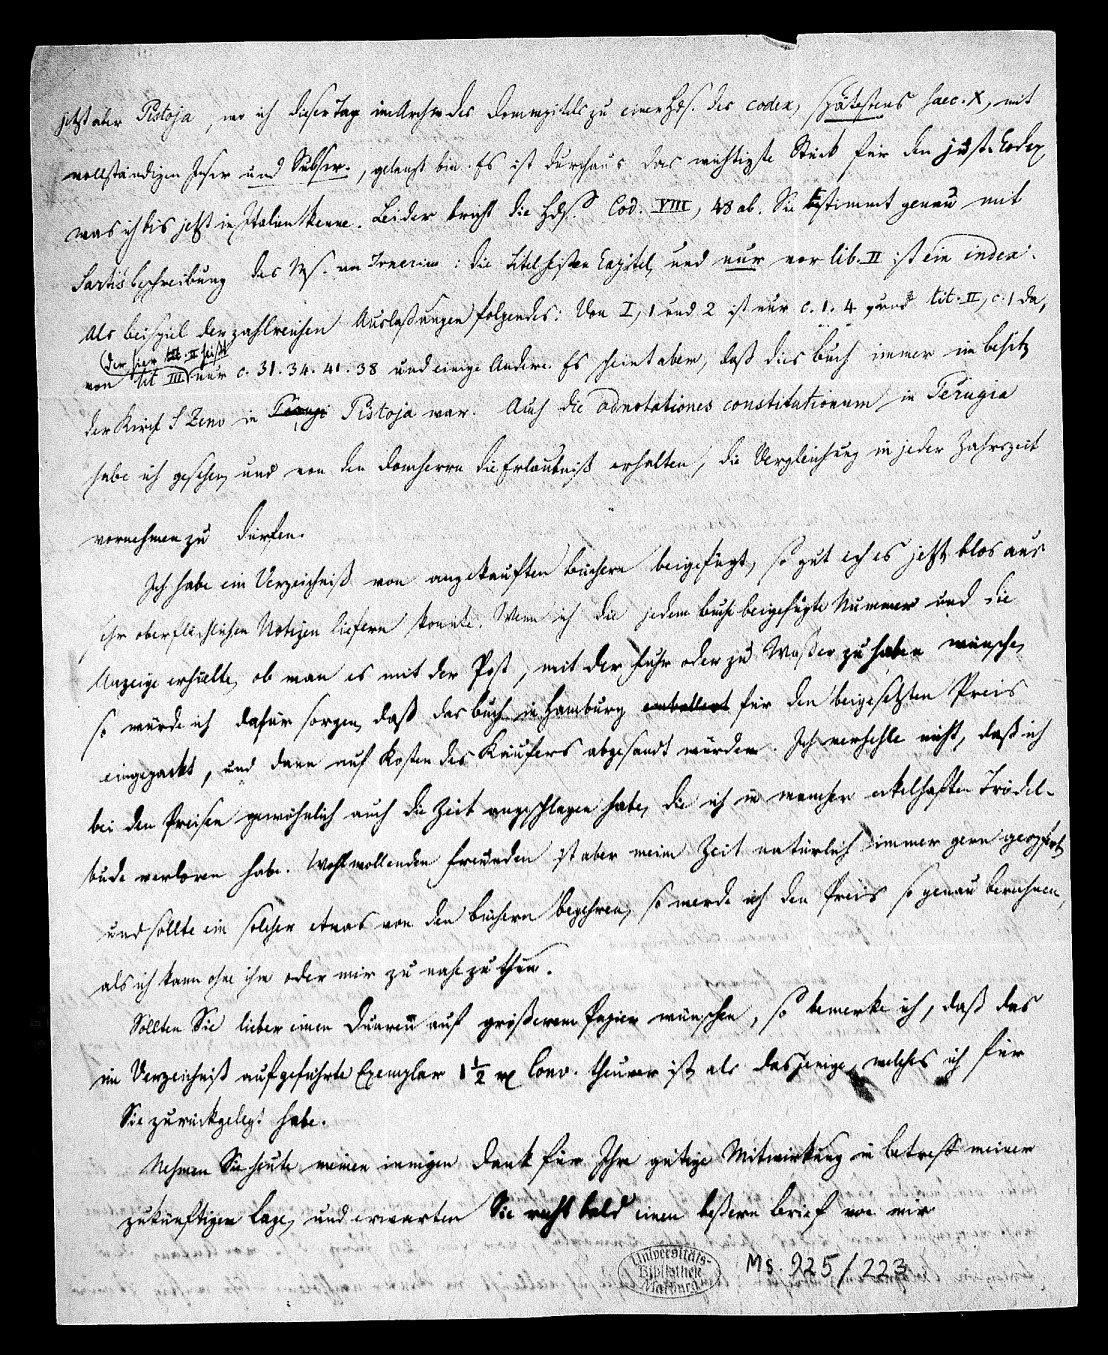 jetzt aber Pistoja, wo ich dieser Tage im Archiv des Domcapitels zu einer Hds. des Codex, spätestens saec. X, mit
vollständigen Inscr. und Subscr., gelangt bin. Es ist durchaus das wichtigste Stück für den just. Codex
was ich bis jetzt in Italien kenne. Leider bricht die Hds. Cod. VIII, 48 ab. Sie stimmt genau mit
Sartis Beschreibung des Ms. von Irnerius: die Titel hießen Capitel, und nur vor lib. II ist ein index.
Als Beispiel der zahlreichen Auslaßungen folgendes: Von I, 1 und 2 ist nur c. 1. 4 und tit. II, c. 1 da,
(der hier tit. II heißt)
von tit III nur c. 31. 34. 41. 38 und einige Andere. Es scheint aber, daß dies Buch immer im Besitz
der Kirche S Zeno in Pistoja war. Auch die adnotationes constitutionum in Perugia
habe ich gesehen, und von den Domherrn die Erlaubniß erhalten, die Vergleichung in jeder Jahrszeit
vornehmen zu dürfen.
Ich habe ein Verzeichniß von angekauften Büchern beigefügt, so gut ich es jetzt blos aus
sehr oberflächlichen Notizen liefern konnte. Wenn ich die jedem Buche beigefügte Nummer und die
Anzeige erhielte, ob man es mit der Post, mit der Fuhr oder zu Waßer zu haben wünsche,
so würde ich dafür sorgen, daß das Buch in Hamburg für den beigesetzten Preis
eingepackt, und dann auf Kosten des Käufers abgesandt würde. Ich verhehle nicht, daß ich
bei den Preisen gewöhnlich auch die Zeit angeschlagen habe, die ich in mancher ekelhaften Trödel-
bude verloren habe. Wohlwollenden Freunden ist aber meine Zeit natürlich immer gern geopfert,
und sollte ein solcher etwas von den Büchern begehren, so werde ich den Preis so genau berechnen,
als ich kann ohne ihm oder mir zu nahe zu thun.
Sollten Sie lieber einen Duaren auf größerem Papier wünschen, so bemerke ich, daß das
im Verzeichniß aufgeführte Exemplar 1 1/2 Conv. theurer ist als dasjenige, welches ich für
Sie zurückgelegt habe.
Nehmen Sie heute meinen innigen Dank für Ihre gütige Mitwirkung in Betreff meiner
zukünftigen Lage, und erwarten Sie recht bald einen beßern Brief von mir
Universitäts-
Bibliothek
Marburg
Ms. 925/223